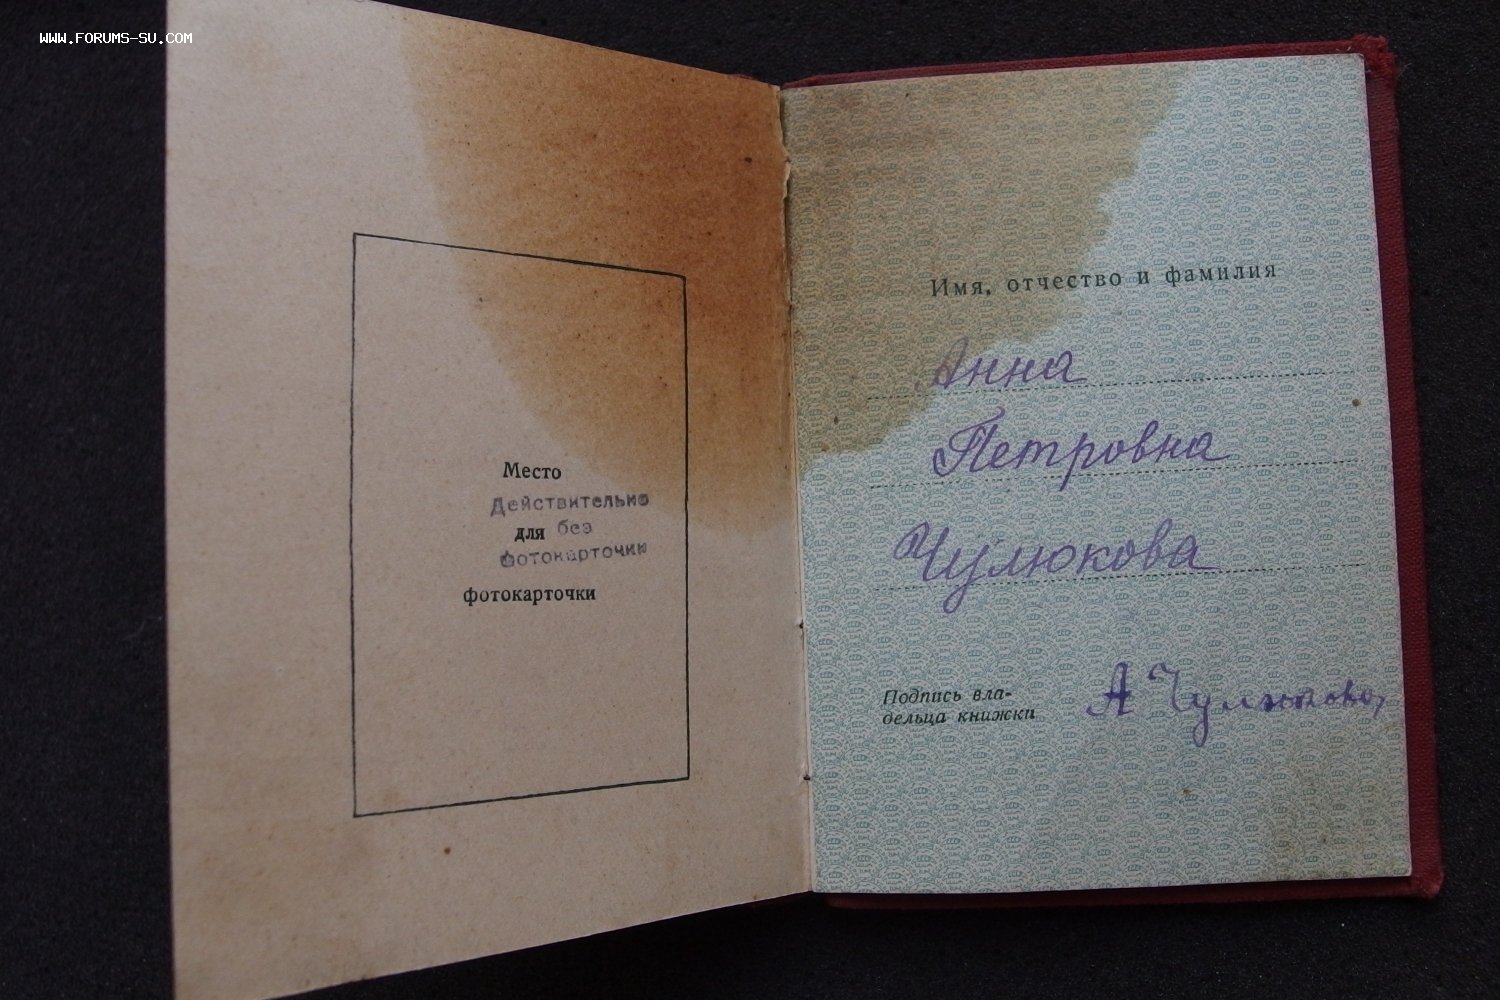 WWW.FORUMS-SU.COM
Место
Действительно
для без
фотокарточки
фотокарточки
Имя, отчество и фамилия
Анна
Петровна
Чулюкова
Подпись вла-
дельца книжки
А Чулюкова